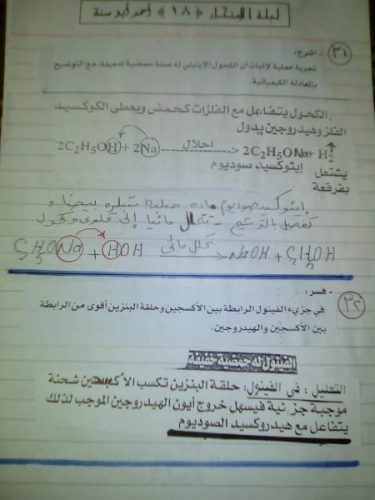 ليلة الامتحان ﴿١٨﴾ أحمد أبو سنة
٣١
- اشرح:
تجربة عملية لإثبات أن الكحول الإيثيلي له صفة حمضية ضعيفة، مع التوضيح
بالمعادلة الكيميائية.
الكحول يتفاعل مع الفلزات كحمض ويعطى الكوكسيد
الفلز وهيدروجين يدول
2C₂H₅OH + 2Na احلال 2C₂H₅ONa + H₂
يشتعل إيثوكسيد صوديوم
بفرقعة
إيثوكسيد صوديوم مادة صلبة متبلرة بيضاء
بالترشيح - تتحلل مائياً إلى قلوى وكحول
C₂H₅ONa + HOH تحلل مائى NaOH + C₂H₅OH
٣٢
- فسر:
في جزيء الفينول الرابطة بين الأكسجين وحلقة البنزين أقوى من الرابطة
بين الأكسجين والهيدروجين.
الفينول له حمضية خفيفة
التعليل: فى الفينول: حلقة البنزين تكسب الأكسجين شحنة
موجبة جزئية فيسهل خروج أيون الهيدروجين الموجب لذلك
يتفاعل مع هيدروكسيد الصوديوم